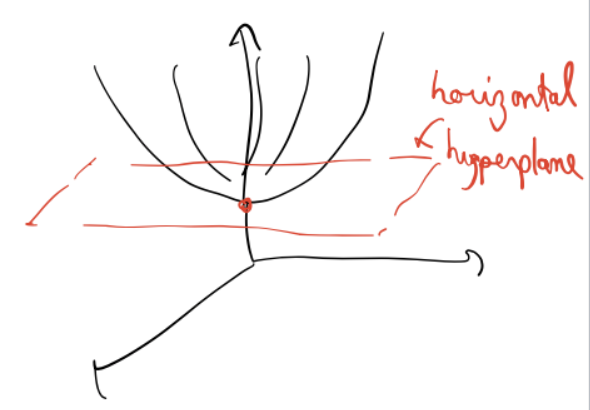 horizontal
hyperplane